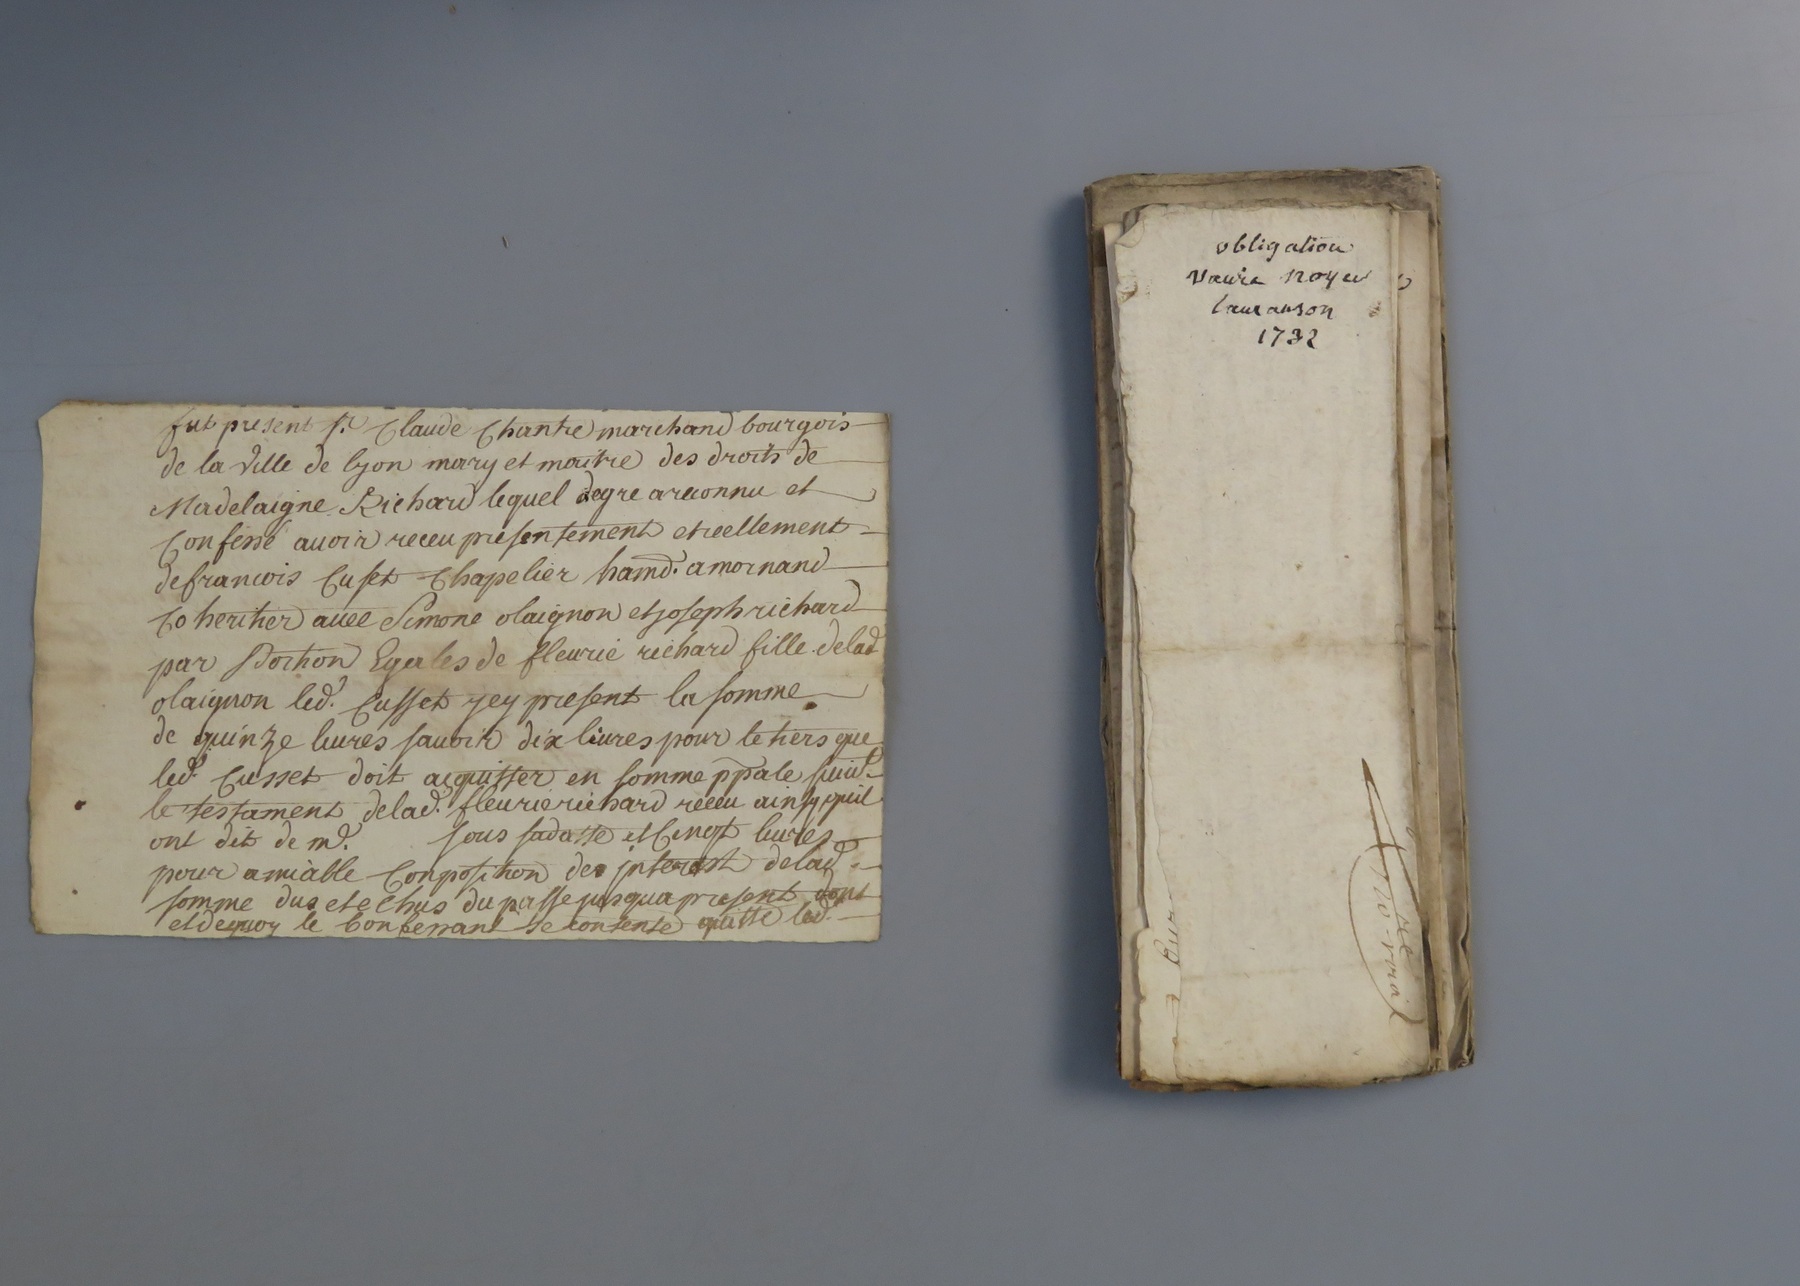 fut present sr. Claude Chantre marchand bourgois
de la ville de lyon mary et maitre des droits de
Madelaigne Richard lequel degre areconnu et
Confessé auoir receu presentement et reellement
defrancois Cuset Chapelier hamd. amornand
Coheritier auec Simone olaignon et joseph richard
par portion Egales de fleurie richard fille delad
olaignon led. Cusset yey present la somme
de quinze liures sauoir dix liures pour le tiers que
led. Cusset doit acquitter en somme ppale suiud.
le testament delad. fleurie richard receu ainsy quil
ont dit de md. sous sadatte et Cinqt liures
pour amiable Conposition des interest delad.
somme dus et echus du passe jusqua present dont
et dequoy le Confessant se contente quitte led.
obligation
noyer
lauranson
1732